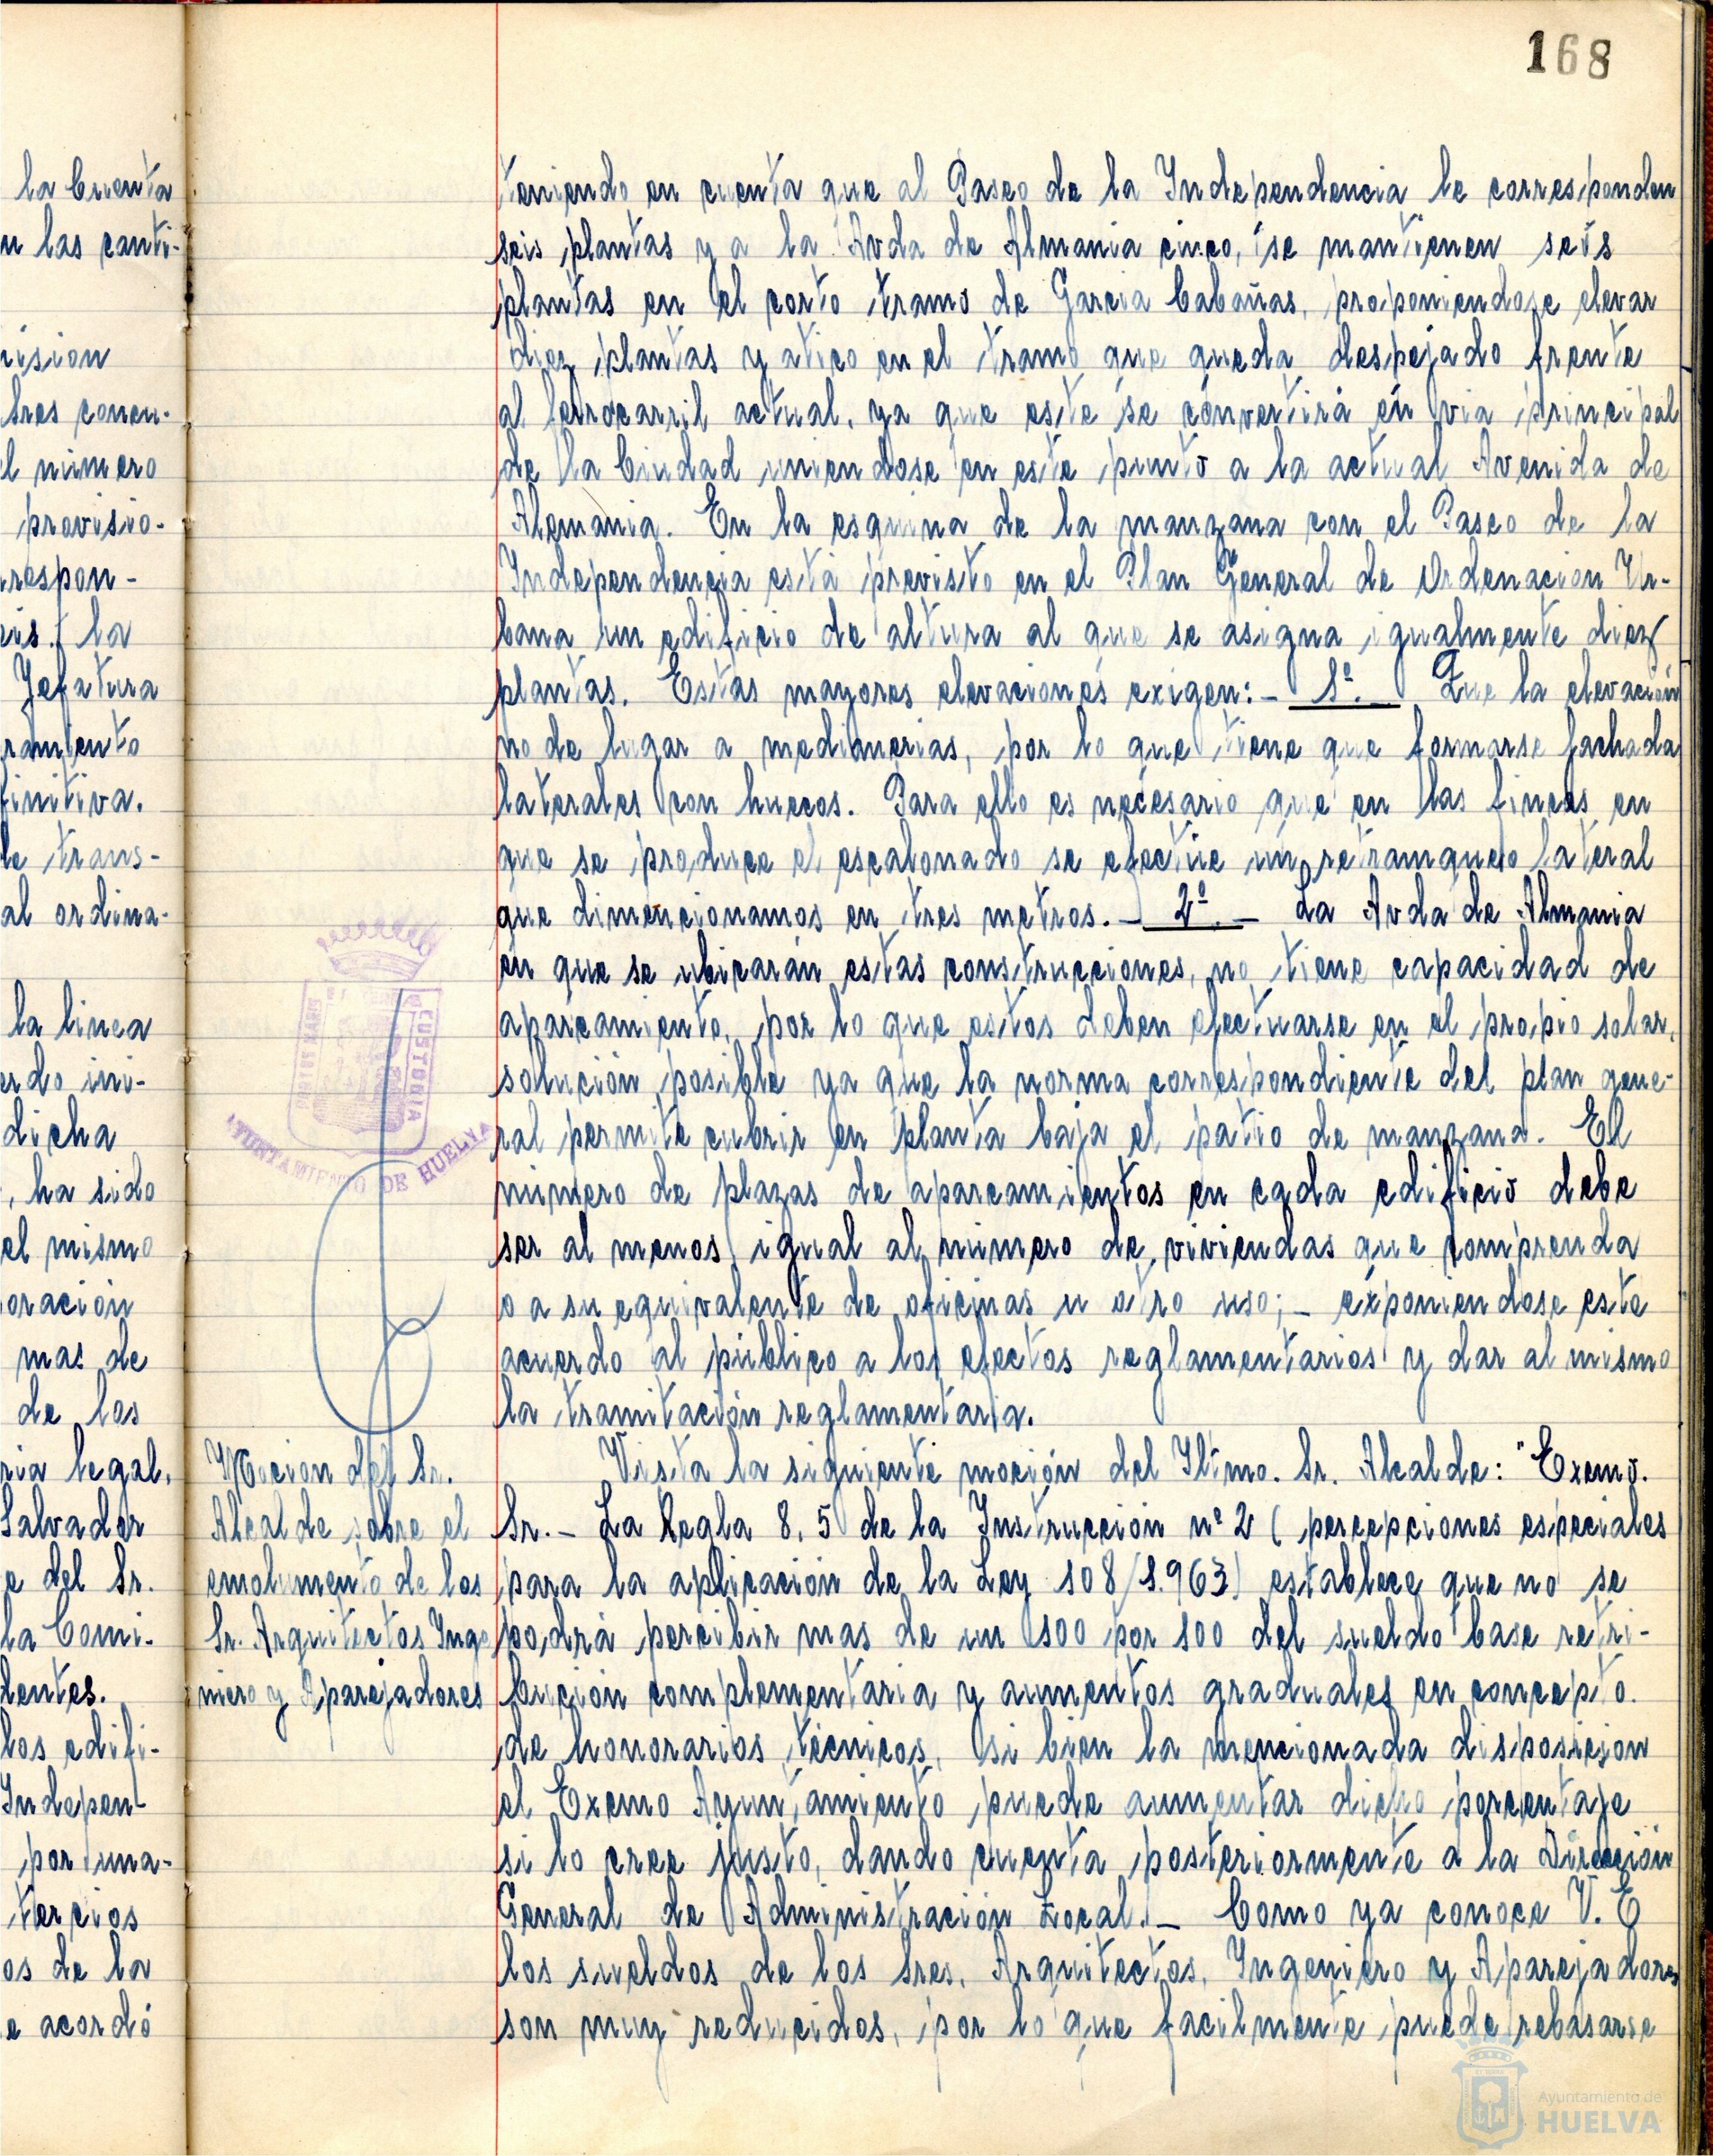 168
la Cuenta
n las canti-
ision
tres concu-
l número
provisio-
respon-
is. la
Jefatura
ramiento
finitiva.
le trans-
al ordina-
la linea
erdo ini-
dicha
, ha sido
el mismo
oración
mas de
de los
ria legal,
Salvador
e del Sr.
la Comi-
dentes.
los edifi-
Indepen-
por una-
tercios
os de la
e acordó
teniendo en cuenta que al Paseo de la Independencia le corresponden
seis plantas y a la Avda de Almania cinco, se mantienen seis
plantas en el corto tramo de Garcia Cabañas, proponiendose elevar
diez plantas y atico en el tramo que queda despejado frente
al ferrocarril actual, ya que este se convertirá en via principal
de la Ciudad uniendose en este punto a la actual Avenida de
Alemania. En la esquina de la manzana con el Paseo de la
Independencia está previsto en el Plan General de Ordenacion Ur-
bana un edificio de altura al que se asigna igualmente diez
plantas. Estas mayores elevaciones exigen:- 1º.- Que la elevación
no de lugar a medianerias, por lo que tiene que formarse fachada
laterales con huecos. Para ello es necesario que en las fincas en
que se produce el escalonado se efectúe un retranqueo lateral
que dimencionamos en tres metros.- 2º.- La Avda de Almania
en que se ubicarán estas construcciones, no tiene capacidad de
aparcamiento, por lo que estos deben efectuarse en el propio solar,
solución posible ya que la norma correspondiente del plan gene-
ral permite cubrir en planta baja el patio de manzana. El
número de plazas de aparcamientos en cada edificio debe
ser al menos igual al número de viviendas que comprenda
o a su equivalente de oficinas u otro uso;- exponiendose este
acuerdo al público a los efectos reglamentarios y dar al mismo
la tramitación reglamentaria.
Mocion del Sr.
Alcalde sobre el
emolumento de los
Sr. Arquitectos Inge
niero y Aparejadores
Vista la siguiente moción del Iltmo. Sr. Alcalde: "Exemo.
Sr.- La Regla 8, 5 de la Instrucción nº 2 ( percepciones especiales
para la aplicación de la Ley 108/1.963) establece que no se
podrá percibir mas de un 100 por 100 del sueldo base retri-
bución complementaria y aumentos graduales en concepto.
de honorarios técnicos, si bien la mencionada disposicion
el Exemo Ayuntamiento puede aumentar dicho porcentaje
si lo cree justo, dando cuenta posteriormente a la Dirección
General de Administración Local.- Como ya conoce V. E
los sueldos de los Sres. Arquitectos, Ingeniero y Aparejadores
son muy reducidos, por lo que facilmente puede rebasarse
PORTUS MARIS
CUSTODIA
AYUNTAMIENTO DE HUELVA
Ayuntamiento de
HUELVA